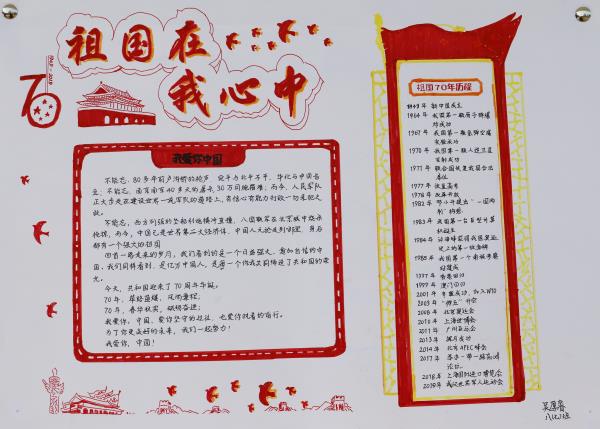 祖国在
我心中
1949-2019
70
我爱你中国
不能忘，80多年前卢沟桥的枪声，
不能忘，南京南京40多天的屠杀，30万同胞罹难；而今，人民军队
正大步走在建设世一流军队的道路上，有信心有能力打败一切来犯之
敌。
不能忘，西方列强的坚船利炮横冲直撞，八国联军在北京城中烧杀
抢掠，而今，中国已是世界第二大经济体，中国人无论走到哪里，身后
都有一个强大的祖国
回首一路走来的岁月，我们看到的是一个日益强大、
国，我们同样看到，是亿万中国人，是每一个你我共同缔造了共和国的荣
光。
今天，共和国迎来了70周年华诞。
70年，筚路蓝缕，风雨兼程；
70年，春华秋实，砥砺奋进；
我爱你，中国，爱你坚守的过往，也爱你执着的前行。
为了你更美好的未来，我们一起努力！
我爱你，中国！
祖国70年历程
1949年 新中国成立
1964年 我国第一颗原子弹爆
炸成功
1967年 我国第一颗氢弹空爆
实验成功
1970年 我国第一颗人造卫星
发射成功
1971年 联合国恢复我国合法
席位
1977年 恢复高考
1978年 改革开放
1982年 邓小平提出"一国两
制"构想
1983年 我国第一台巨型计算
机诞生
1984年 许海峰获得我国奥运
史上的第一块金牌
1985年 我国第一个南极考察
站建成
1997年 香港回归
1999年 澳门回归
2001年 申奥成功，加入WTO
2003年 "神五"升空
2008年 北京奥运会
2010年 上海世博会
2010年 广州亚运会
2013年 嫦月成功
2014年 北京APEC峰会
2017年 首次一带一路高峰
论坛
2018年 上海国际进口博览会
2019年 武汉世界军人运动会
八(七)班